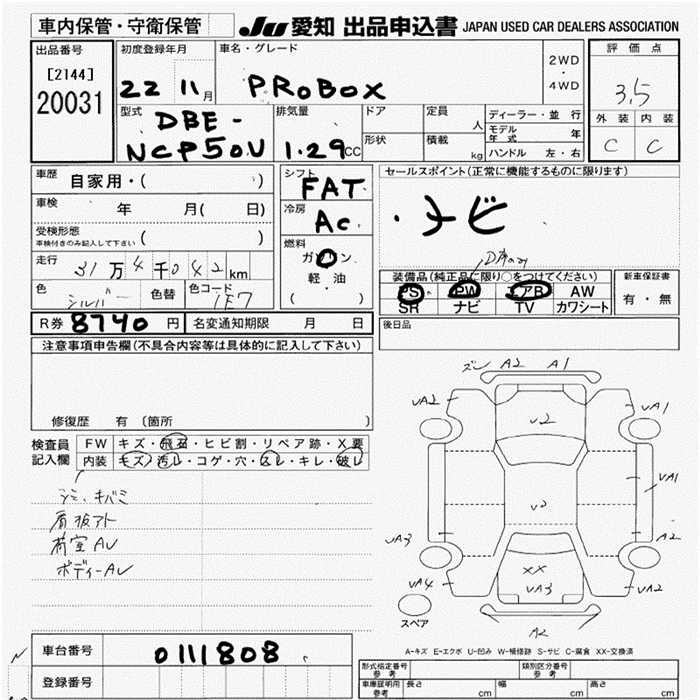 車内保管・守衛保管 JU 愛知 出品申込書 JAPAN USED CAR DEALERS ASSOCIATION
出品番号
[2144]
20031
初度登録年月
22 11月
車名・グレード
PROBOX
2WD
・
4WD
評価点
3.5
外装 内装
C C
型式
DBE-
NCP50V
排気量
1.29CC
ドア
形状
定員
人
積載
kg
ディーラー・並行
モデル年式 年
ハンドル 左・右
車歴 自家用・( )
車検 年 月( 日)
受検形態
車検付きのみ記入して下さい ( )
走行 31万4千042km
色 シルバー 色替 色コード 1E7
シフト
FAT
冷房
AC
燃料
ガソリン
・
軽油
( ・ )
セールスポイント(正常に機能するものに限ります)
・ナビ
装備品(純正品に限り○をつけてください)
PS PW エアB AW
SR ナビ TV カワシート
新車保証書
有・無
R券 8740円 名変通知期限 月 日
後日品
注意事項申告欄(不具合内容等は具体的に記入して下さい)
修復歴 有 〔箇所 〕
検査員
記入欄
FW キズ・飛石・ヒビ割・リペア跡・X要
内装 キズ・汚レ・コゲ・穴・スレ・キレ・破レ
シミ、キバミ
看板アト
荷室AU
ボディーAU
ズレ A2 A1
UA2 UA1
U2
UA1
U2
UA3 A2
XX
UA3
UA4 UA2
スペア
A2
A-キズ E-エクボ U-凹み W-補修跡 S-サビ C-腐食 XX-交換済
車台番号 0111808
登録番号
型式指定番号
参考
類別区分番号
参考
車庫証明用
参考
長さ cm 幅 cm 高さ cm